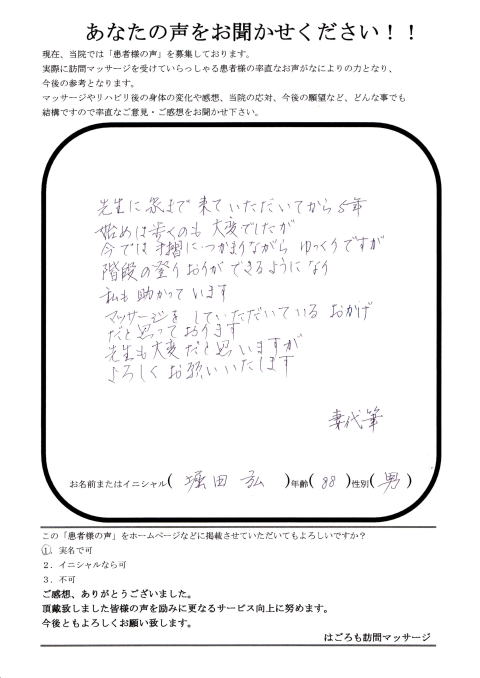 あなたの声をお聞かせください！！
現在、当院では「患者様の声」を募集しております。
実際に訪問マッサージを受けていらっしゃる患者様の率直なお声がなによりの力となり、
今後の参考となります。
マッサージやリハビリ後の身体の変化や感想、当院の応対、今後の願望など、どんな事でも
結構ですので率直なご意見・ご感想をお聞かせ下さい。
先生に家まで来ていただいてから5年
始めは歩くのも大変でしたが
今では手摺につかまりながらゆっくりですが
階段の登りおりができるようになり
私も助かっています
マッサージをしていただいているおかげ
だと思っております
先生も大変だと思いますが
よろしくお願いいたします
妻代筆
お名前またはイニシャル( 堀田 弘 )年齢( 88 )性別( 男 )
この「患者様の声」をホームページなどに掲載させていただいてもよろしいですか？
１．実名で可
２．イニシャルなら可
３．不可
ご感想、ありがとうございました。
頂戴致しました皆様の声を励みに更なるサービス向上に努めます。
今後ともよろしくお願い致します。
はごろも訪問マッサージ